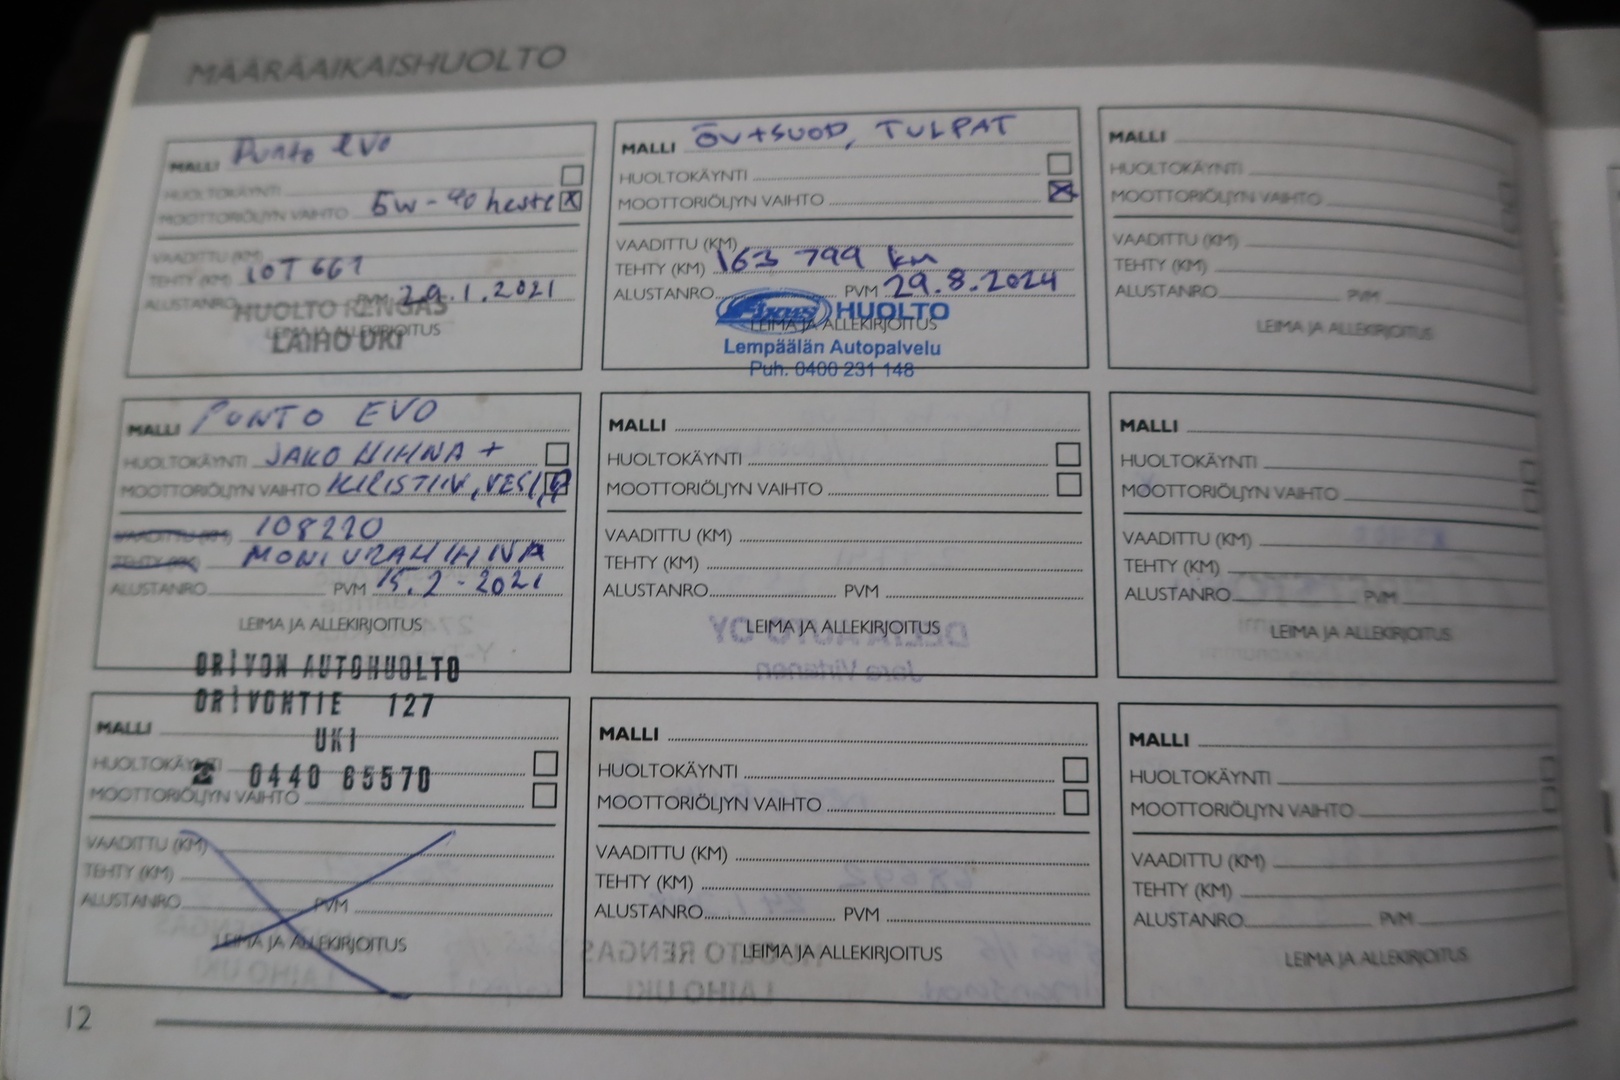 MÄÄRÄAIKAISHUOLTO
MALLI Punto evo
HUOLTOKÄYNTI
MOOTTORIÖLJYN VAIHTO 5w-40 heste X
VAADITTU (KM)
TEHTY (KM) 107 661
ALUSTANRO PVM 29.1.2021
HUOLTO RENGAS
LEIMA JA ALLEKIRJOITUS
LAIHO UKI
MALLI ÖV+SUOD, TULPAT
HUOLTOKÄYNTI
MOOTTORIÖLJYN VAIHTO X
VAADITTU (KM)
TEHTY (KM) 163 799 km
ALUSTANRO PVM 29.8.2024
HUOLTO
LEIMA JA ALLEKIRJOITUS
Lempäälän Autopalvelu
Puh. 0400 231 148
MALLI
HUOLTOKÄYNTI
MOOTTORIÖLJYN VAIHTO
VAADITTU (KM)
TEHTY (KM)
ALUSTANRO PVM
LEIMA JA ALLEKIRJOITUS
MALLI PUNTO EVO
HUOLTOKÄYNTI JAKO HIHNA +
MOOTTORIÖLJYN VAIHTO KIRISTIN, VESI
VAADITTU (KM) 108220
TEHTY (KM) MONIURAHIHNA
ALUSTANRO PVM 15.2-2021
LEIMA JA ALLEKIRJOITUS
ORIVON AUTOHUOLTO
ORIVONTIE 127
UKI
☎ 0440 65570
MALLI
HUOLTOKÄYNTI
MOOTTORIÖLJYN VAIHTO
VAADITTU (KM)
TEHTY (KM)
ALUSTANRO PVM
LEIMA JA ALLEKIRJOITUS
MALLI
HUOLTOKÄYNTI
MOOTTORIÖLJYN VAIHTO
VAADITTU (KM)
TEHTY (KM)
ALUSTANRO PVM
LEIMA JA ALLEKIRJOITUS
MALLI
HUOLTOKÄYNTI
MOOTTORIÖLJYN VAIHTO
VAADITTU (KM)
TEHTY (KM)
ALUSTANRO PVM
LEIMA JA ALLEKIRJOITUS
MALLI
HUOLTOKÄYNTI
MOOTTORIÖLJYN VAIHTO
VAADITTU (KM)
TEHTY (KM)
ALUSTANRO PVM
LEIMA JA ALLEKIRJOITUS
MALLI
HUOLTOKÄYNTI
MOOTTORIÖLJYN VAIHTO
VAADITTU (KM)
TEHTY (KM)
ALUSTANRO PVM
LEIMA JA ALLEKIRJOITUS
12